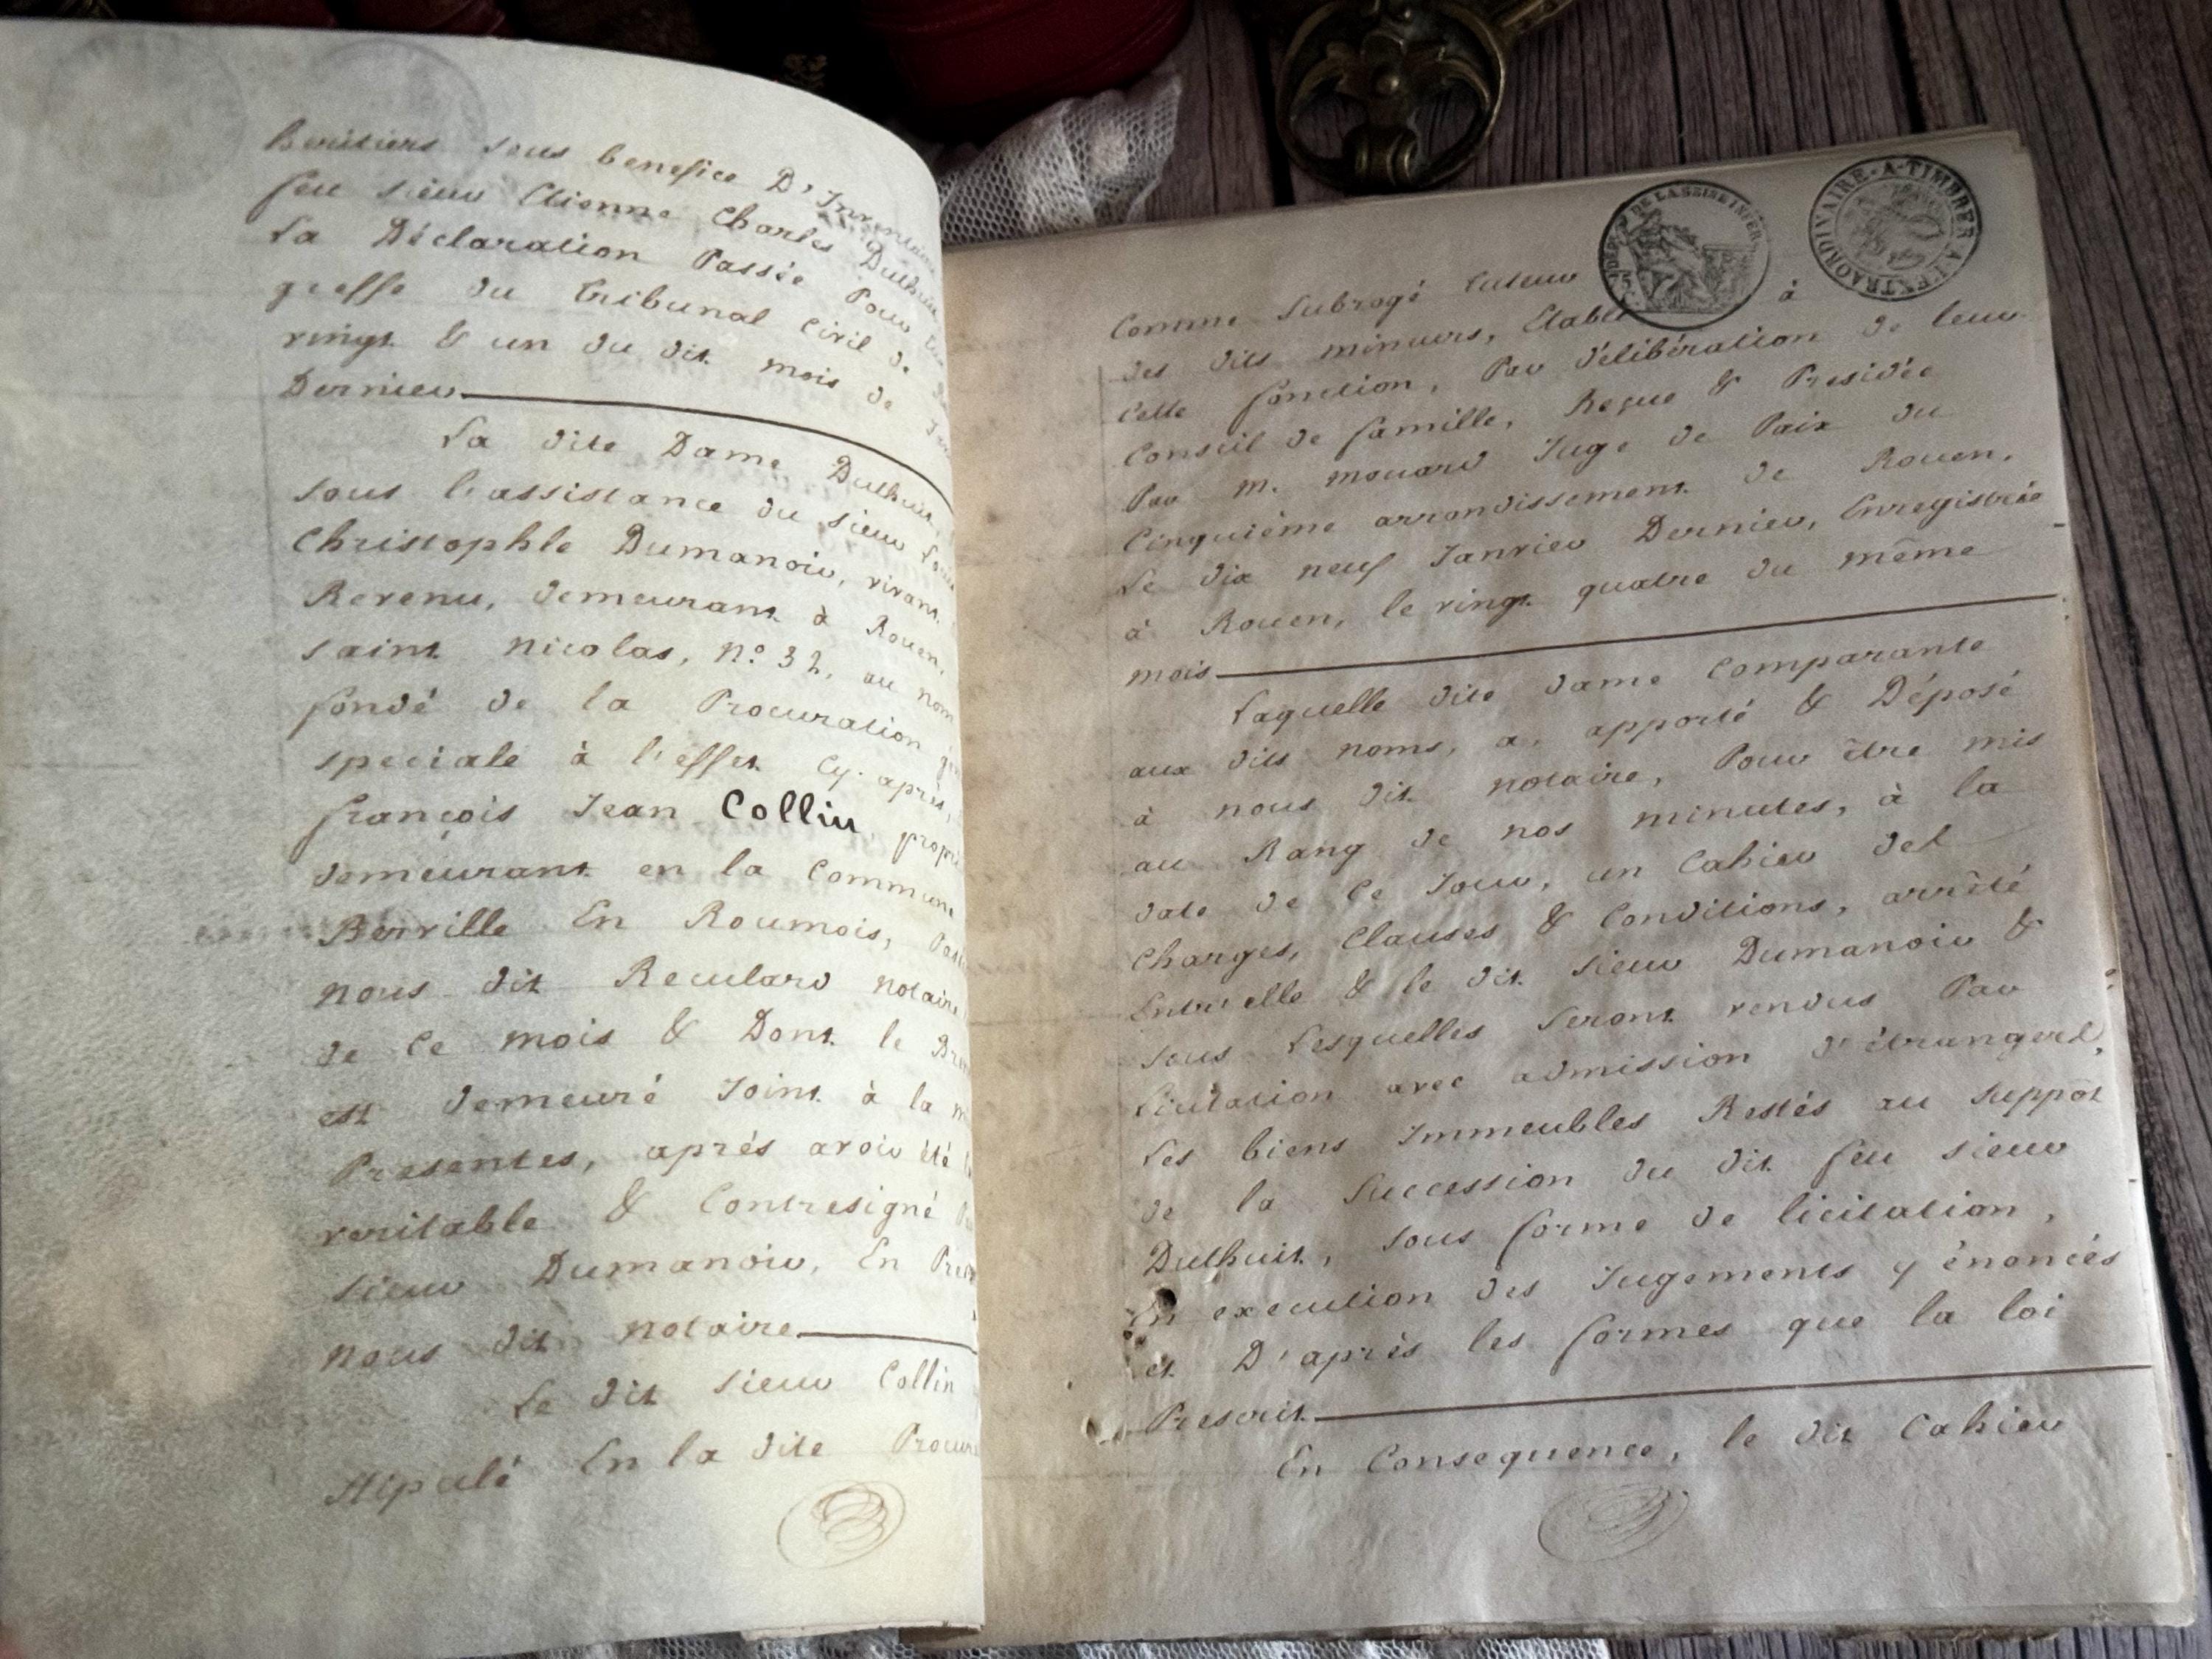 heritiers sous benefice D'Inventaire
feu sieur Etienne Charles Duthuit
La Déclaration Passée Pour
greffe du tribunal Civil de
vingt & un du dit mois de
Dernier
La dite Dame Duthuit
sous l'assistance du sieur Louis
Christophle Dumanoir, vivant
Revenu, demeurant à Rouen,
saint Nicolas, N° 32, au nom
fondé de la Procuration
speciale à l'effet Cy. après,
françois Jean Collin
demeurant en la Commune
Berville En Roumois,
nous dit Recullard notaire
de Ce mois & Dont le
est demeuré Joint à la
Presentes, après avoir été
veritable & Contresigné
sieur Dumanoir, En
nous dit notaire
Le dit sieur Collin
stipulé En la dite
DEPT DE LA SEINE INFER
A-TIMBRER A L'EXTRAORDINAIRE
Comme Subrogé tuteur
des dits mineurs, Etabli à
Cette fonction, Par délibération de leur
Conseil de famille, Reçue & Presidée
Par M. mouard Juge de Paix du
Cinquième arrondissement de Rouen,
Le dix neuf Janvier Dernier, Enregistrée
à Rouen, le vingt quatre du même
mois
Laquelle dite dame Comparante
aux dits noms, a apporté & Déposé
à nous dit notaire, Pour être mis
au Rang de nos minutes, à la
date de Ce Jour, un Cahier des
Charges, Clauses & Conditions, arrêté
Entr'elle & le dit sieur Dumanoir &
sous Lesquelles seront vendus Par
Licitation avec admission d'étrangers,
Les biens Immeubles Restés au suppôt
de la Succession du dit feu sieur
Duthuit, sous forme de licitation,
En execution des Jugements y énoncés
et D'après les formes que la loi
Prescrit
En Consequence, le dit Cahier